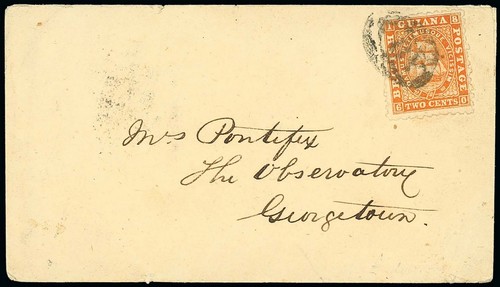 BRITISH GUIANA POSTAGE
1 8 6 0
TWO CENTS
Mrs Pontifex
The Observatory
Georgetown.